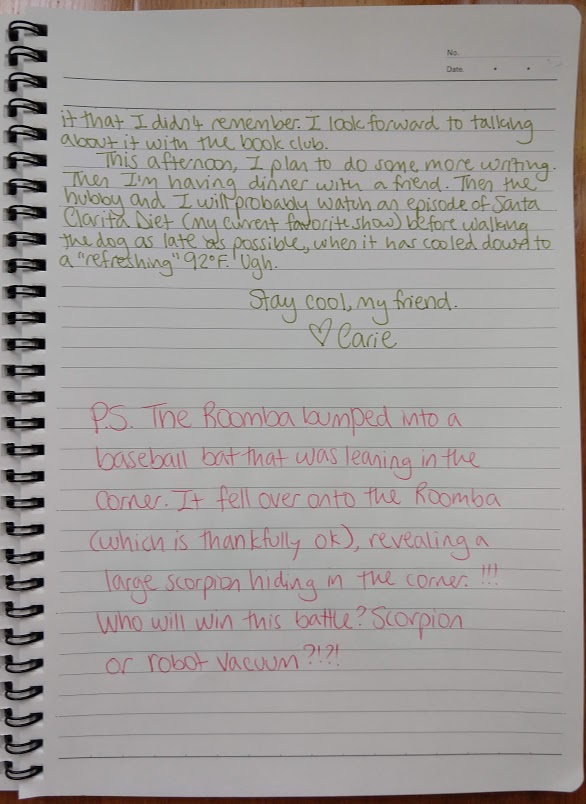 No.
Date
it that I didn't remember. I look forward to talking
about it with the book club.
This afternoon, I plan to do some more writing.
Then I'm having dinner with a friend. Then the
hubby and I will probably watch an episode of Santa
Clarita Diet (my current favorite show) before walking
the dog as late as possible, when it has cooled down to
a "refreshing" 92°F. Ugh.
Stay cool, my friend.
♡ Carie
P.S. The Roomba bumped into a
baseball bat that was leaning in the
corner. It fell over onto the Roomba
(which is thankfully ok), revealing a
large scorpion hiding in the corner.!!!
Who will win this battle? Scorpion
or robot vacuum?!?!